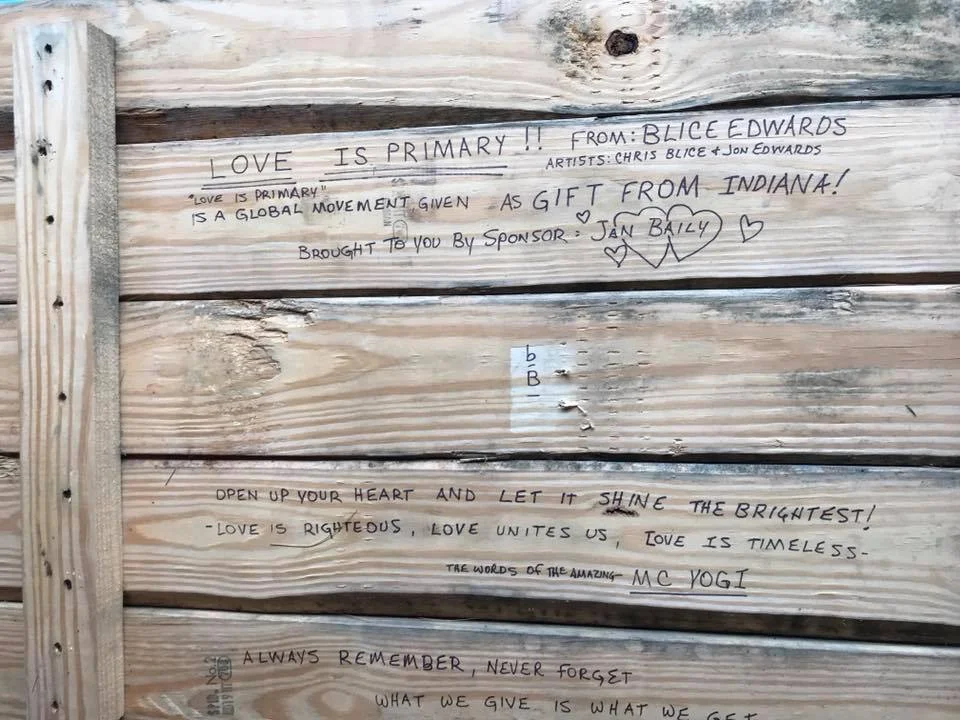 LOVE IS PRIMARY !! FROM: BLICE EDWARDS
ARTISTS: CHRIS BLICE & JON EDWARDS
"LOVE IS PRIMARY"
IS A GLOBAL MOVEMENT GIVEN AS GIFT FROM INDIANA!
BROUGHT TO YOU BY SPONSOR: JAN BAILY
b
B
OPEN UP YOUR HEART AND LET IT SHINE THE BRIGHTEST!
-LOVE IS RIGHTEOUS, LOVE UNITES US, LOVE IS TIMELESS-
THE WORDS OF THE AMAZING- MC YOGI
ALWAYS REMEMBER, NEVER FORGET
WHAT WE GIVE IS WHAT WE GET
No.2